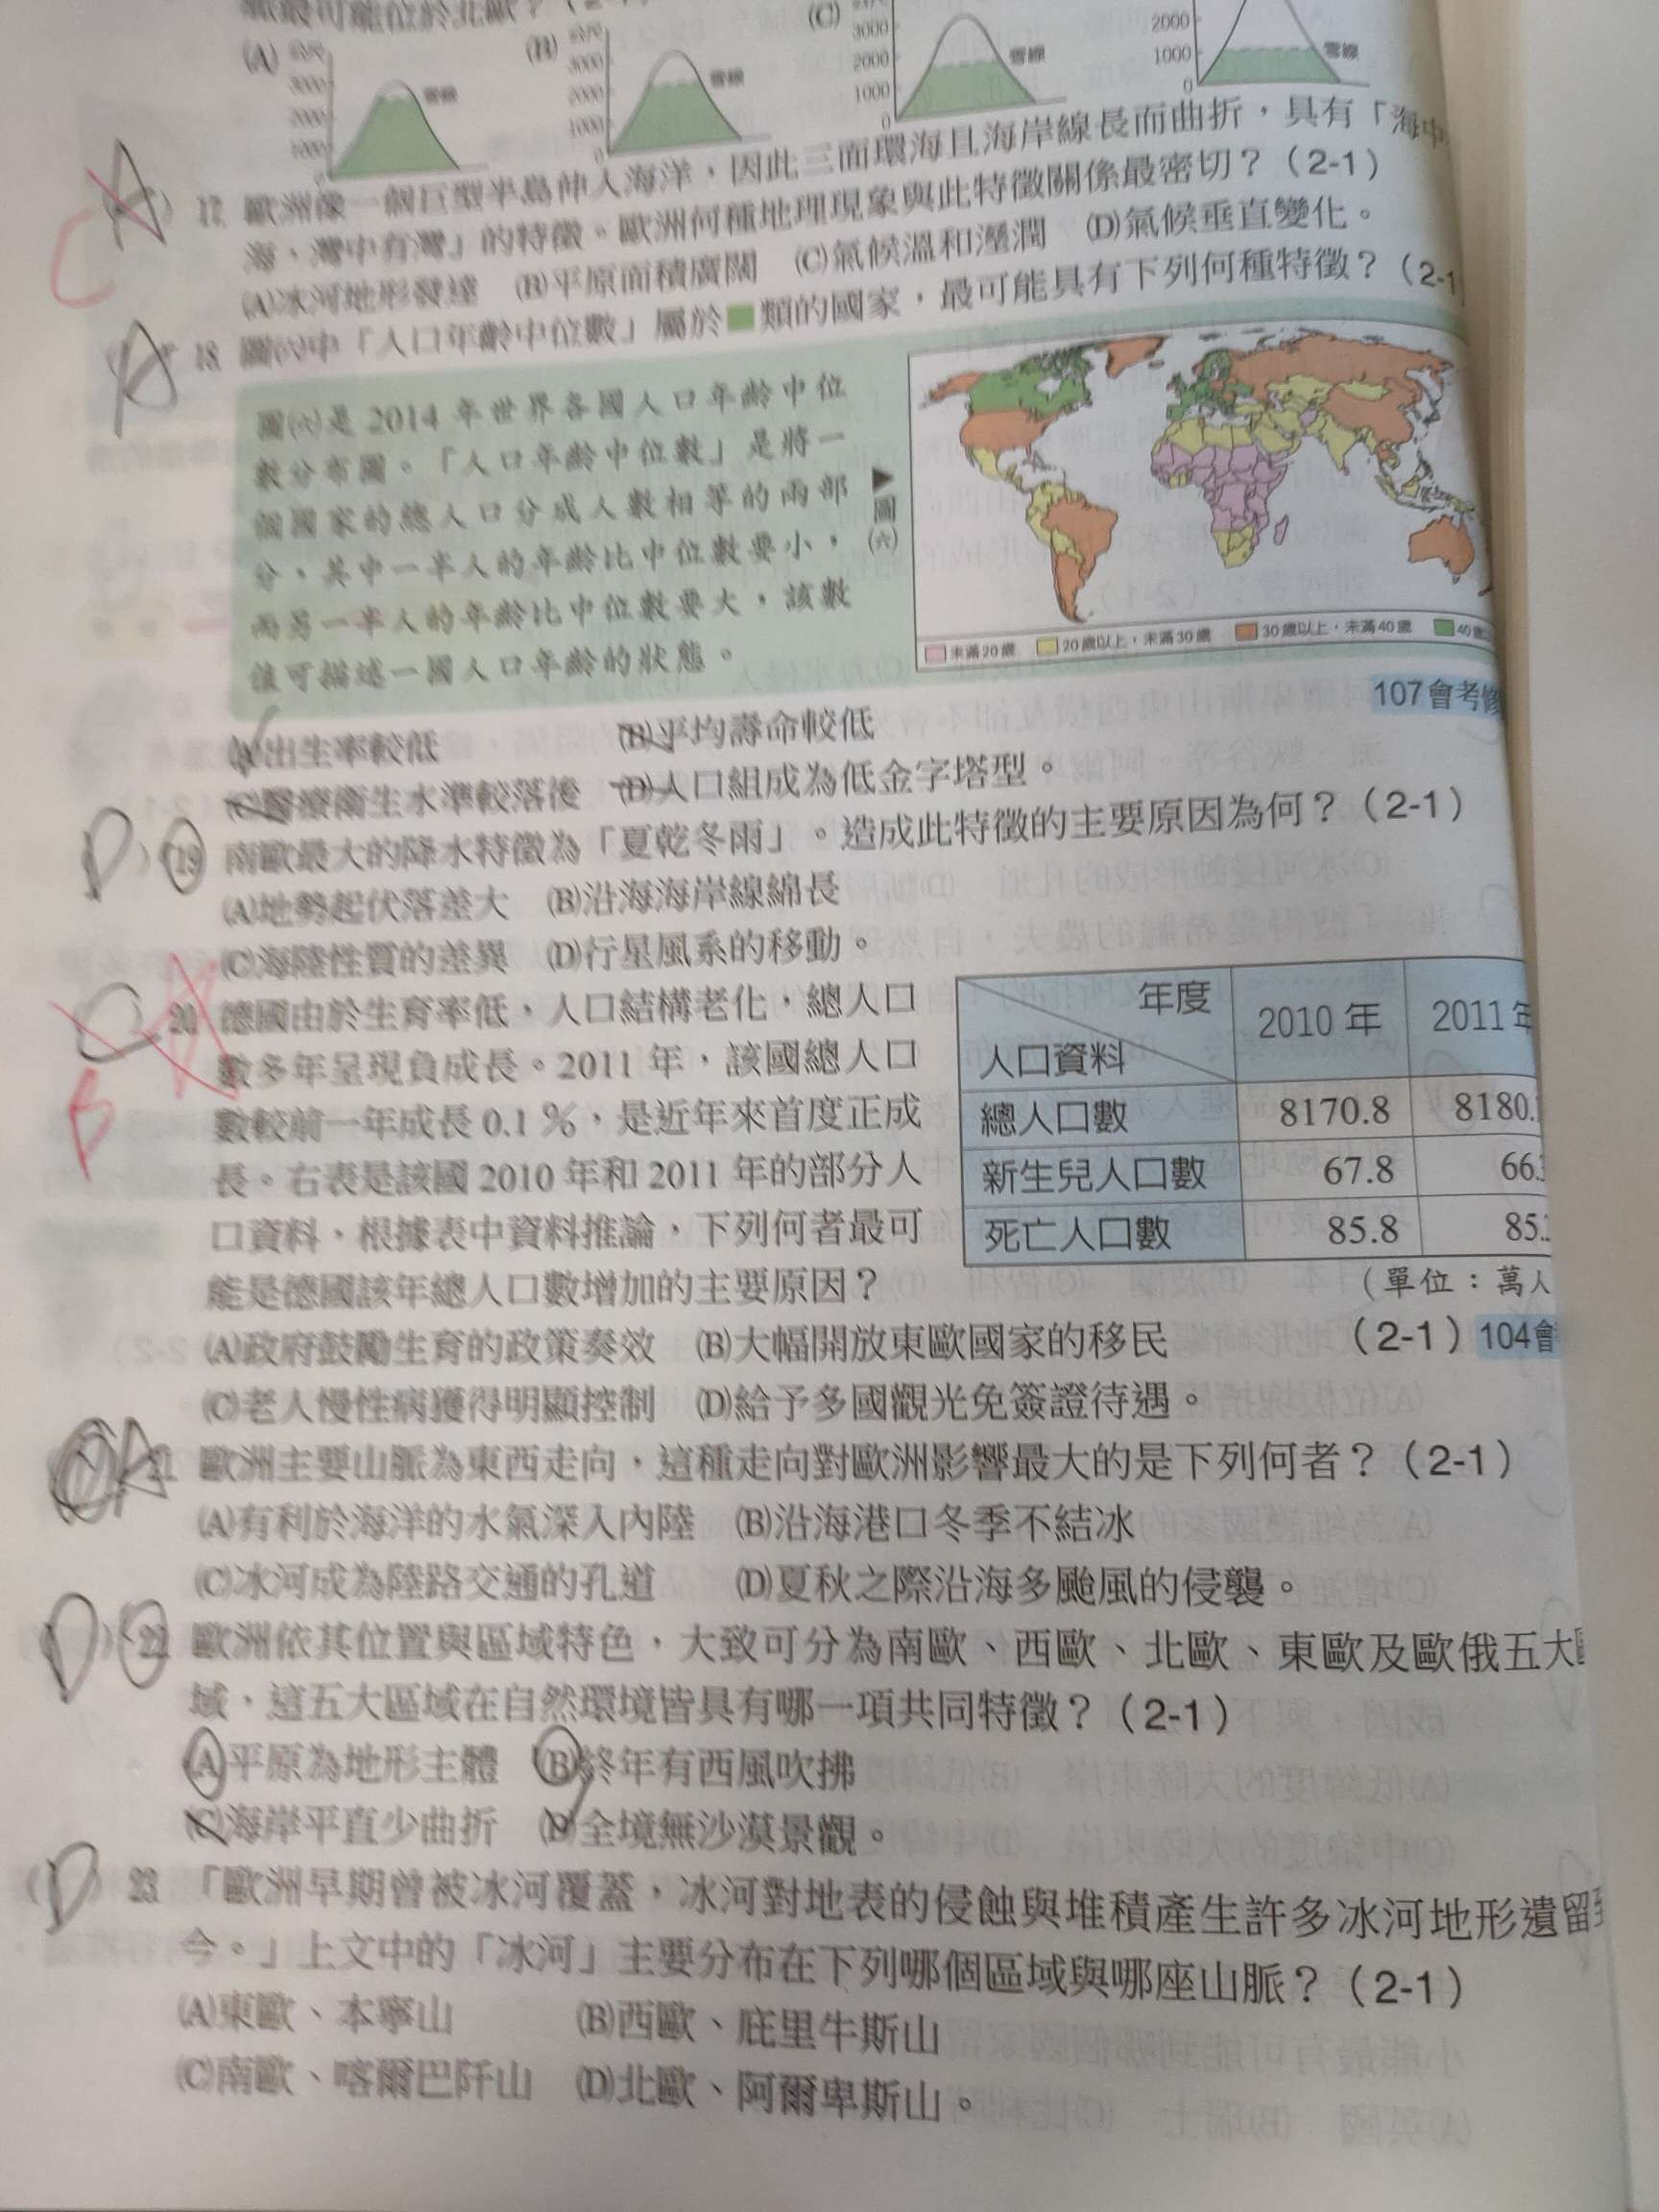 (A) 公尺 3000 2000 1000 雪線
(B) 公尺 3000 2000 1000 0 雪線
(C) 3000 2000 1000 0 雪線
2000 1000 0 雪線
A C 17. 歐洲像一個巨型半島伸入海洋,因此三面環海且海岸線長而曲折,具有「海中
海、灣中有灣」的特徵。歐洲何種地理現象與此特徵關係最密切?(2-1)
(A)冰河地形發達 (B)平原面積廣闊 (C)氣候溫和溼潤 (D)氣候垂直變化。
A 18. 圖㈥中「人口年齡中位數」屬於■類的國家,最可能具有下列何種特徵?(2-1
圖㈥是 2014 年世界各國人口年齡中位
數分布圖。「人口年齡中位數」是將一
個國家的總人口分成人數相等的兩部
分,其中一半人的年齡比中位數要小,
而另一半人的年齡比中位數要大,該數
值可描述一國人口年齡的狀態。
▶圖㈥
未滿20歲 20歲以上,未滿30歲 30歲以上,未滿40歲 40歲
107會考修
(A)出生率較低 (B)平均壽命較低
(C)醫療衛生水準較落後 (D)人口組成為低金字塔型。
D 19. 南歐最大的降水特徵為「夏乾冬雨」。造成此特徵的主要原因為何?(2-1)
(A)地勢起伏落差大 (B)沿海海岸線綿長
(C)海陸性質的差異 (D)行星風系的移動。
C A B 20. 德國由於生育率低,人口結構老化,總人口
數多年呈現負成長。2011 年,該國總人口
數較前一年成長 0.1 %,是近年來首度正成
長。右表是該國 2010 年和 2011 年的部分人
口資料,根據表中資料推論,下列何者最可
能是德國該年總人口數增加的主要原因?
年度 人口資料 2010 年 2011 年
總人口數 8170.8 8180.
新生兒人口數 67.8 66.
死亡人口數 85.8 85.
(單位:萬人
(A)政府鼓勵生育的政策奏效 (B)大幅開放東歐國家的移民 (2-1) 104會
(C)老人慢性病獲得明顯控制 (D)給予多國觀光免簽證待遇。
A 21. 歐洲主要山脈為東西走向,這種走向對歐洲影響最大的是下列何者?(2-1)
(A)有利於海洋的水氣深入內陸 (B)沿海港口冬季不結冰
(C)冰河成為陸路交通的孔道 (D)夏秋之際沿海多颱風的侵襲。
D 22. 歐洲依其位置與區域特色,大致可分為南歐、西歐、北歐、東歐及歐俄五大
域,這五大區域在自然環境皆具有哪一項共同特徵?(2-1)
(A)平原為地形主體 (B)終年有西風吹拂
(C)海岸平直少曲折 (D)全境無沙漠景觀。
D 23. 「歐洲早期曾被冰河覆蓋,冰河對地表的侵蝕與堆積產生許多冰河地形遺留
今。」上文中的「冰河」主要分布在下列哪個區域與哪座山脈?(2-1)
(A)東歐、本寧山 (B)西歐、庇里牛斯山
(C)南歐、喀爾巴阡山 (D)北歐、阿爾卑斯山。